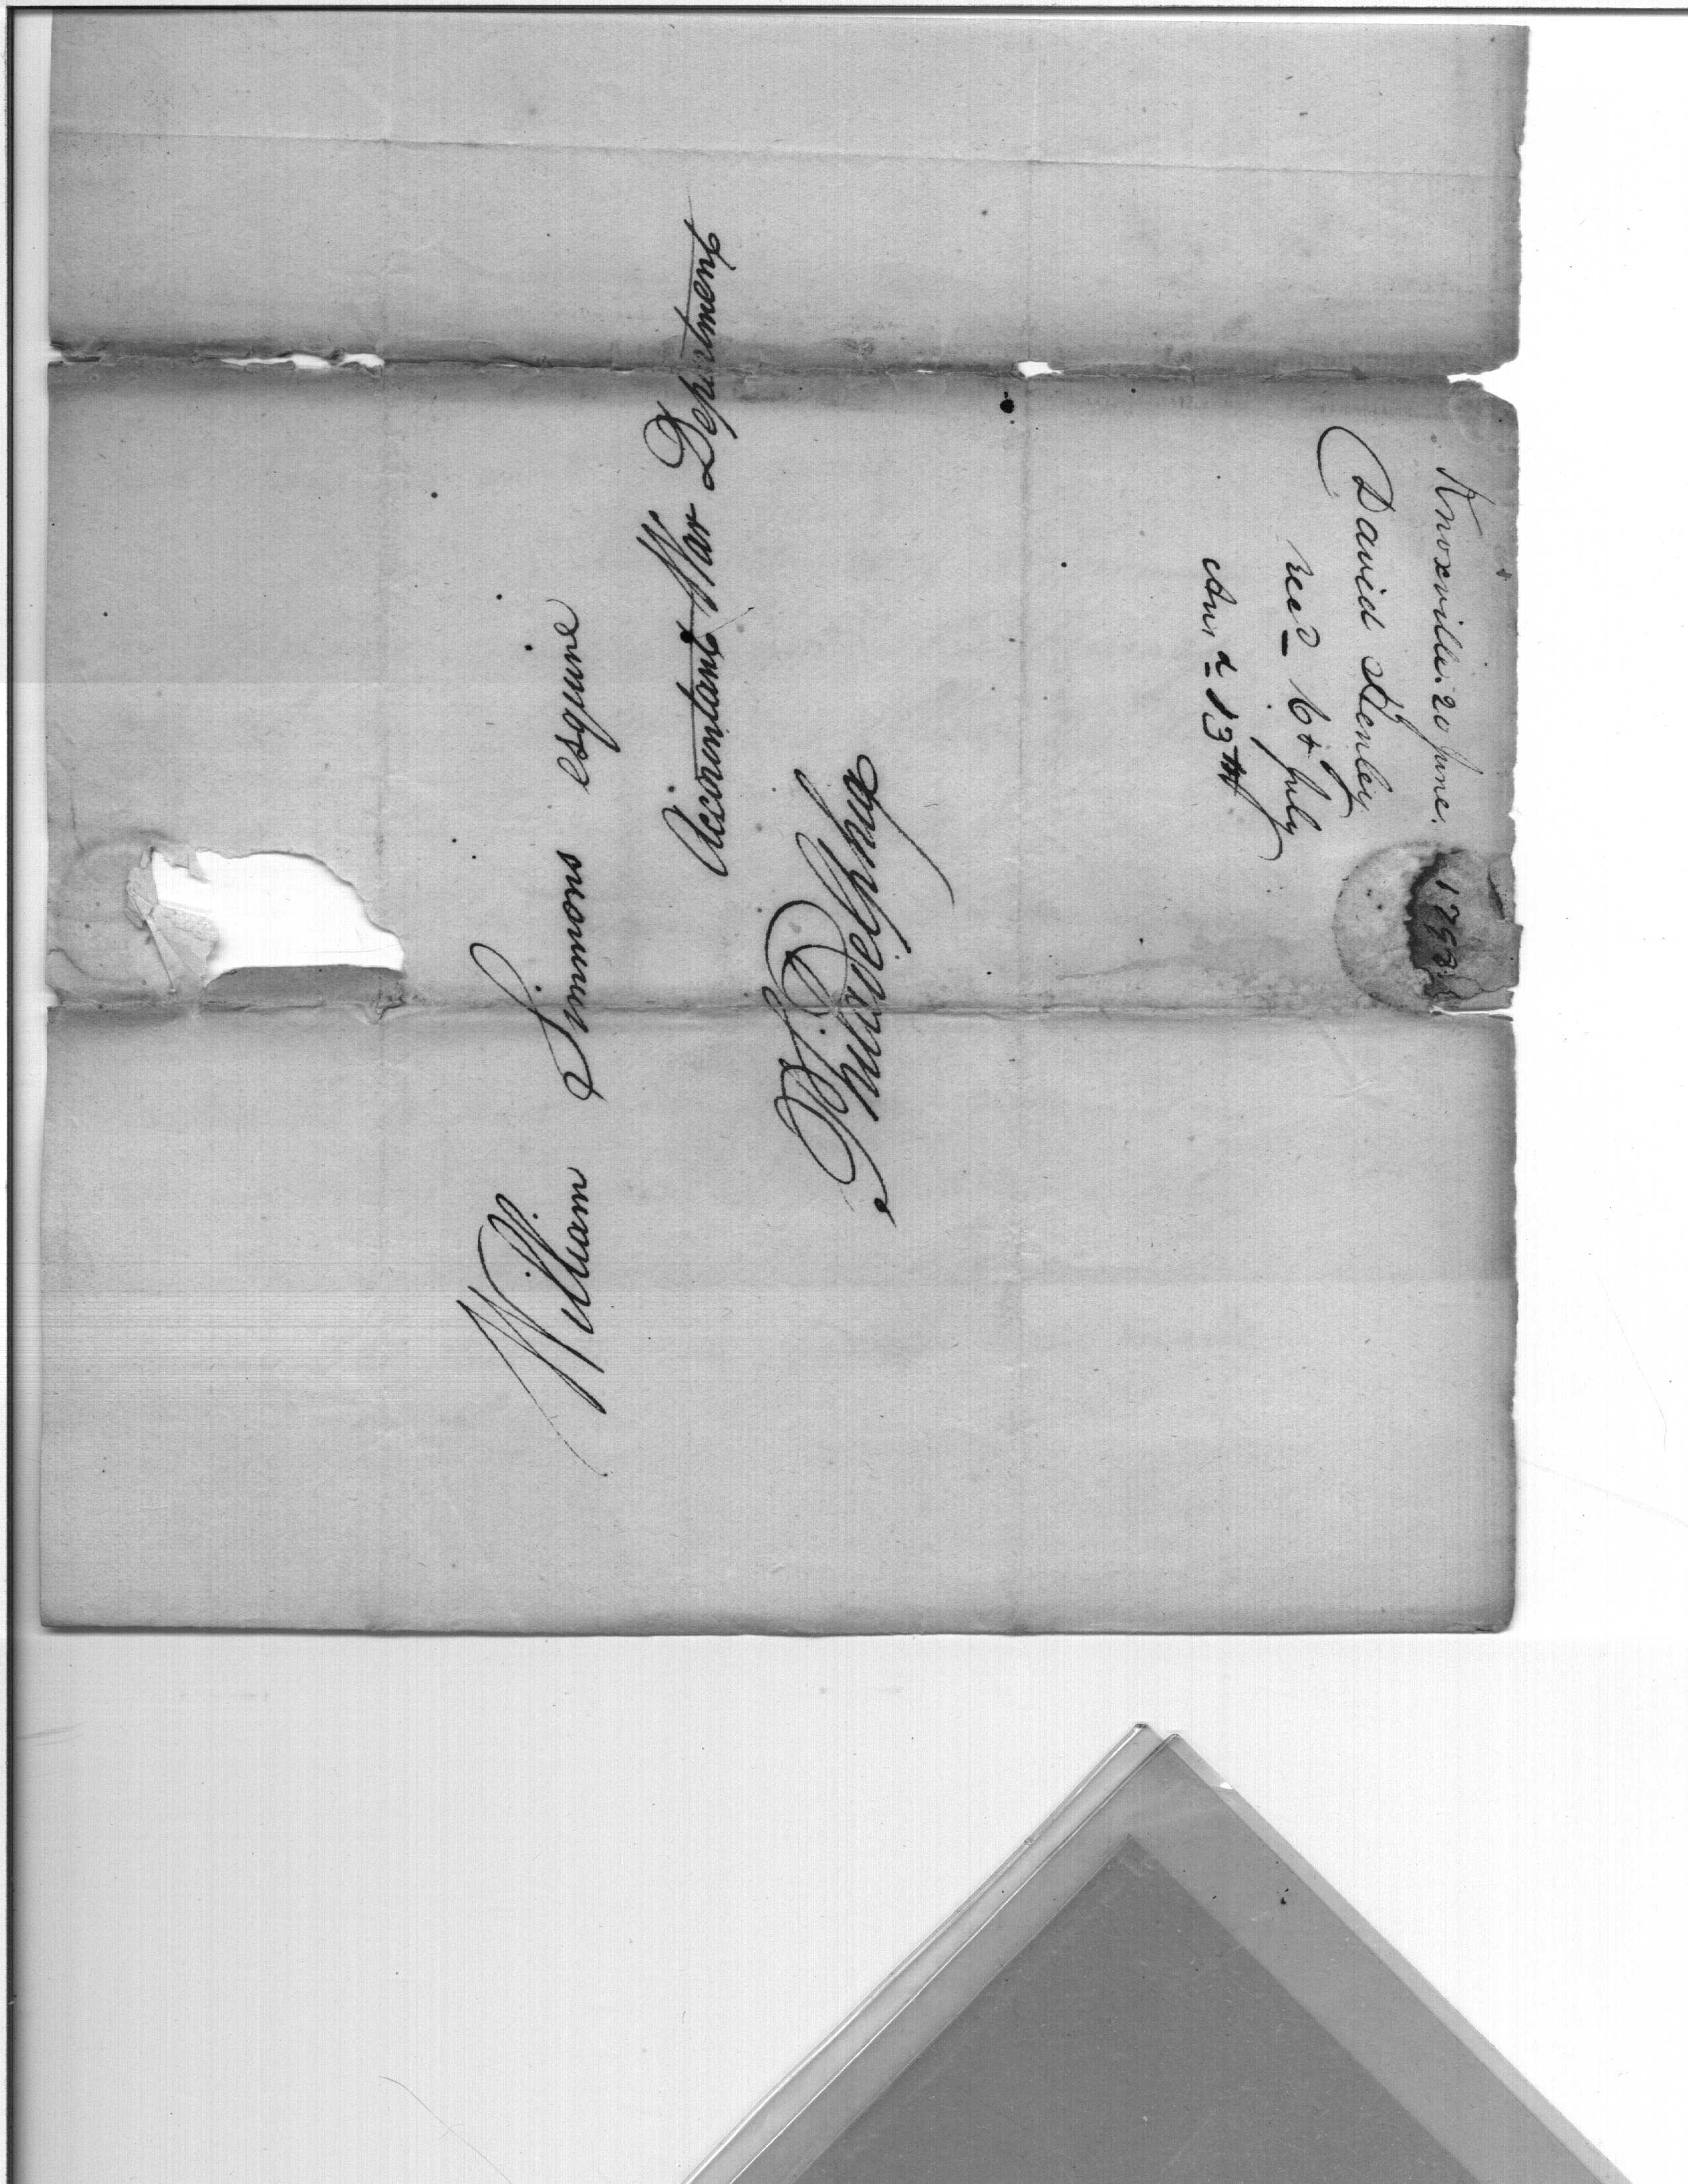 William Simmons esquire
Accountant War Department
Philadelphia
Knoxville. 20 June. 1798
David Henley
recd 6t July
Ansd 13th